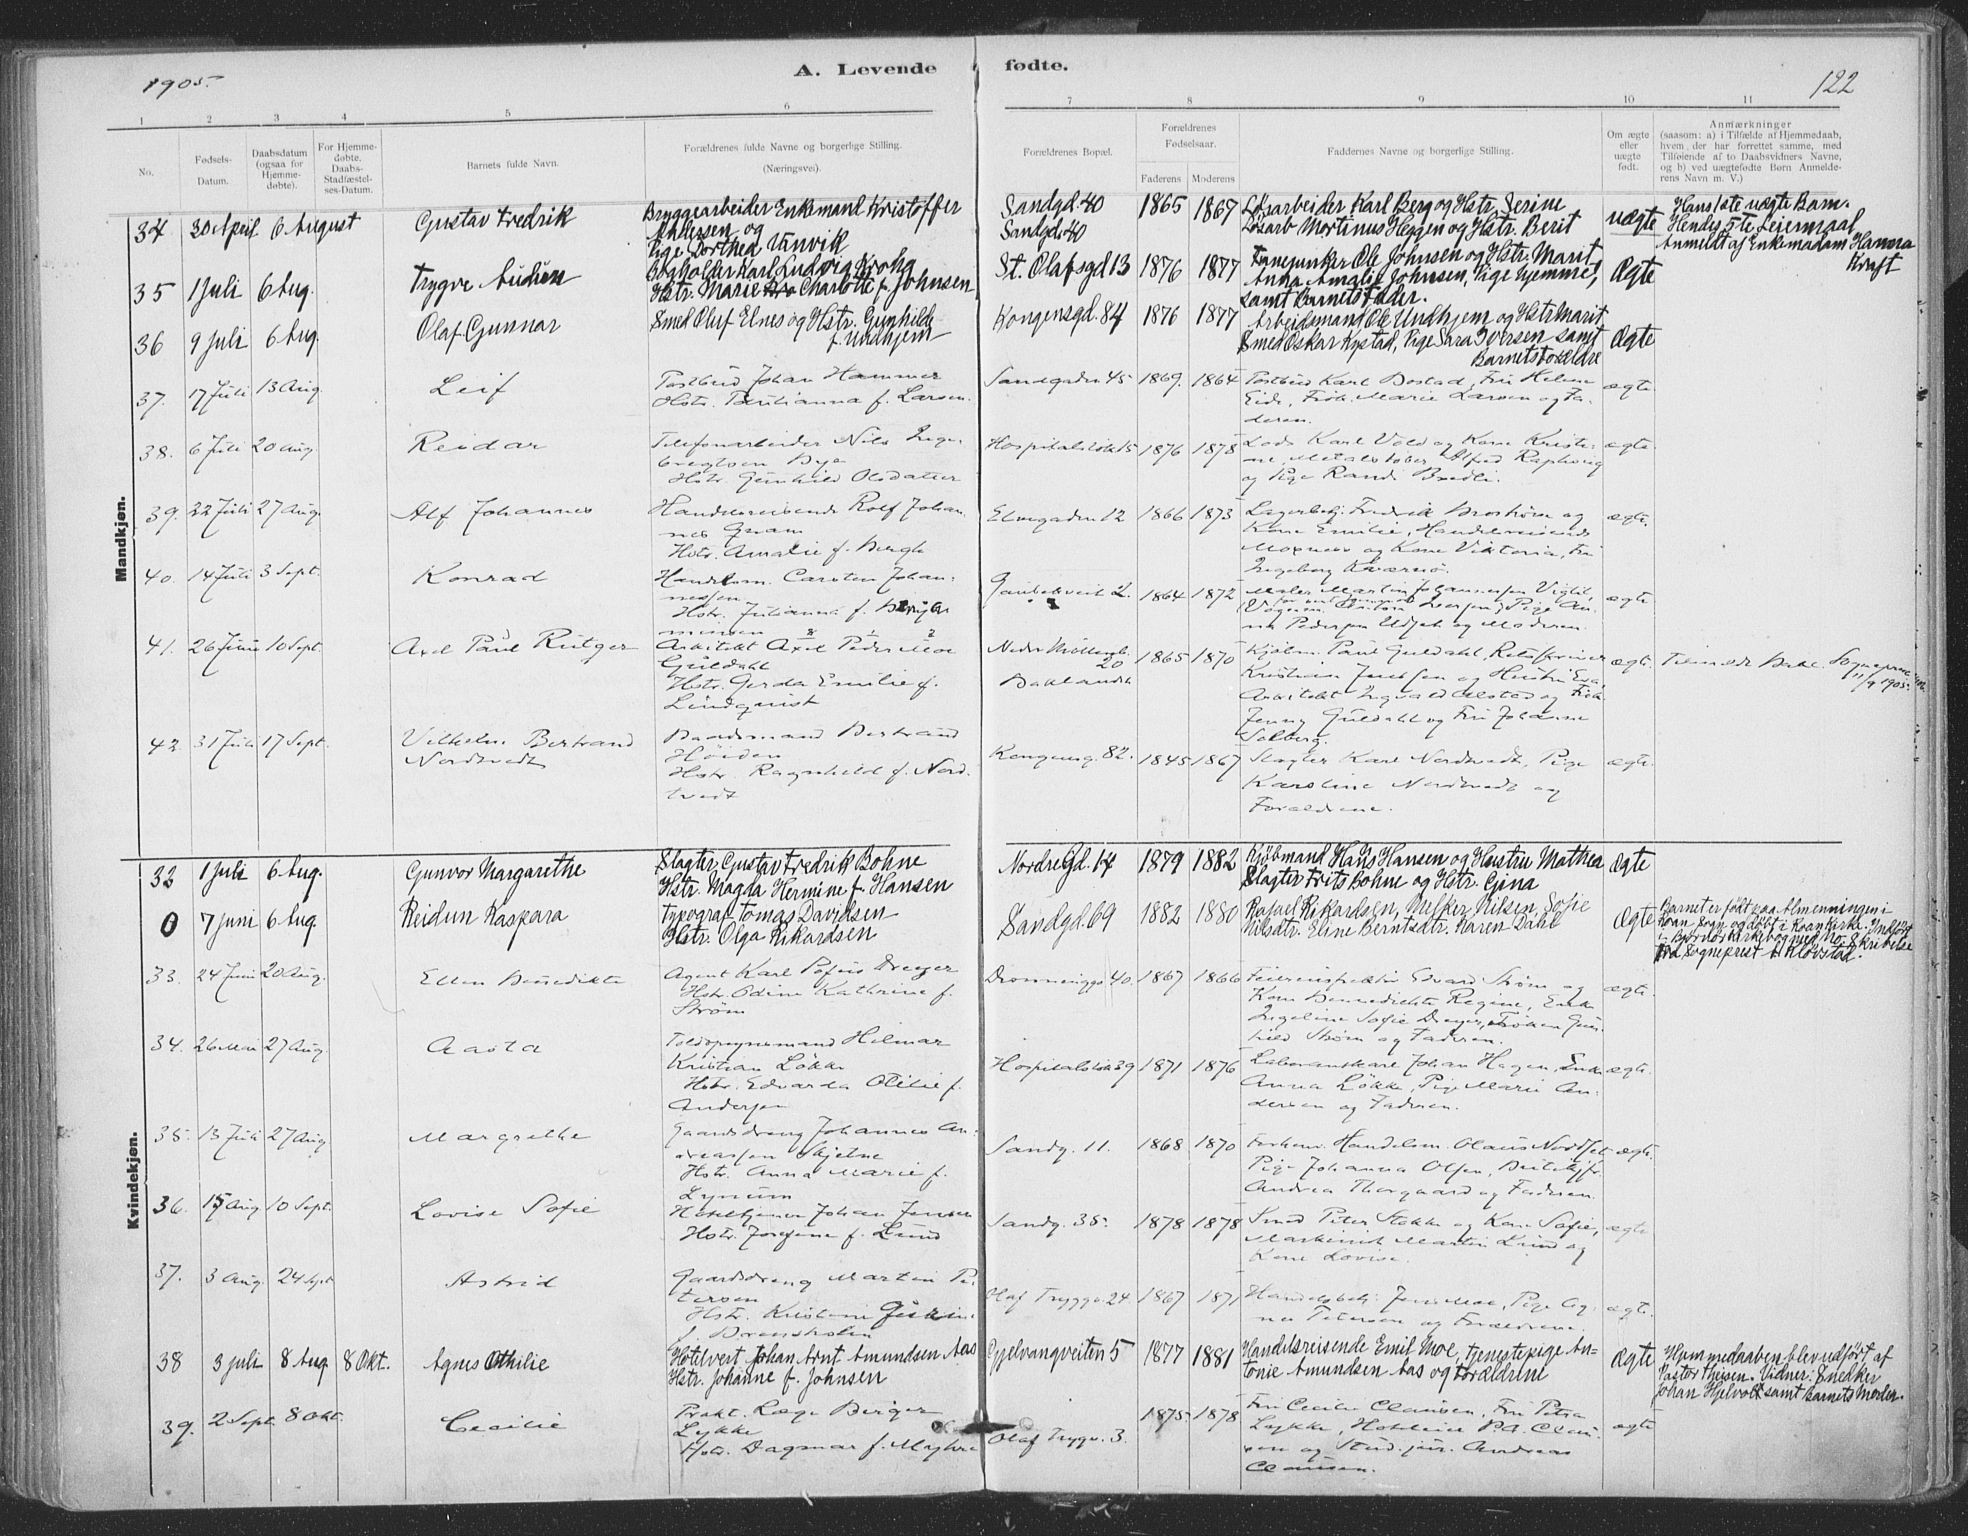 1905.
A. Levende fødte.
122
1 2 3 4 5 6 7 8 9 10 11
No.
Fødsels-
Datum.
Daabsdatum
(ogsaa for
Hjemme-
døbte).
For Hjemme-
døbte.
Daabs-
Stadfæstel-
ses-Datum.
Barnets fulde Navn.
Forældrenes fulde Navne og borgerlige Stilling.
(Næringsvei).
Forældrenes Bopæl.
Forældrenes
Fødselsaar.
Faderens Moderens
Faddernes Navne og borgerlige Stilling.
Om ægte
eller
uægte
født.
Anmærkninger
(saasom: a) i Tilfælde af Hjemmedaab,
hvem der har forrettet samme, med
Tilføiende af to Daabsvidners Navne,
og b) ved uægtefødte Børn Anmelde-
rens Navn m. V.)
Mandkjøn.
34 30 April 6 August Gustav Fredrik
Bryggearbeider Enkemand Kristoffer
Andersen og
Pige Dorthea Vanvik
Sandgd 40
Sandgd. 40
1865 1867
Løsarbeider Karl Berg og Hstr. Serine
Løsarb Mortinus Heggen og Hstr. Berit
uægte
Hans 1ste uægte Barn.
Hendes 5te Leiermaal
Anmeldt af Enkemadam Hanna
Kraft
35 1 Juli 6 Aug. Trygve Audun
Bogholder Karl Ludvig Krohg
Hstr. Marie Charlotte f. Johnsen
St. Olafsgd 13 1876 1877
Ole Johnsen og Hstr. Marit
Anna Amalie Johnsen, Pige hjemme,
samt Barnets Fader.
Ægte
36 9 Juli 6 Aug. Olaf Gunnar
Smed Oluf Elnes og Hstr. Gunhild
f. Undhjem
Kongensgd. 84 1876 1877
Arbeidsmand Ole Undhjem og Hstr Marit
Smed Oskar Kystad, Pige Sara Iversen samt
Barnets Forældre
Ægte
37. 17 Juli 13 Aug. Leif
Postbud Johan Hammer
Hstr. f. Larsen.
Sandgaden 45 1869. 1864
Postbud Karl Bostad, Fru Helene
Eide, Frøk. Marie Larsen og Fa-
deren.
ægte
38. 6 Juli 20 Aug. Reidar
Telefonarbeider Nils Inge-
brigtsen Bye
Hstr. Gunhild Olsdatter
15 1876 1878
Lods Karl Vold og Kone Kristi-
ne, Metalstøber Alfred
og Pige Randi
ægte.
39. 22 Juli 27 Aug. Alf Johannes
Handelsreisende Rolf Johan-
nes Gram
Hstr. Amalie f. Bergh
Elvegaden 12 1866 1873
Lagerbetj. Fredrik Broström og
Kone Emilie, Handelsreisende
Moxness og Kone Viktoria, Fru
Ingeborg Kværnø.
ægte.
40. 14 Juli 3 Sept. Konrad
Handelsm. Carsten Johan-
nesen
Hstr. Julianna f. Benja-
minsen
2. 1864 1872
Maler Martin Johannesen
Pige An-
na Pedersen og Moderen.
ægte.
41. 26 Juni 10 Sept. Axel Paul Rütger
Arkitekt Axel Peder Moe
Guldahl
Hstr. Gerda Emilie f.
Lindquist
20
Baklandet
1865 1870
Kjøbm. Paul Guldahl,
Kristian og Hustru Eva,
Arkitekt Ingvald Alstad og Frøk.
Jenny Guldahl og Fru Johanne
Solberg.
ægte.
Tilmeldt Bakl. Sogneprest
11/9 1905.
42. 31 Juli 17 Sept. Vilhelm Bertrand
Nordtvedt
Baadsmand Bertrand
Høiden
Hstr. Ragnhild f. Nord-
tvedt
Kongensg. 82. 1845 1867
Slagter Karl Nordtvedt, Pige
Karoline Nordtvedt og
Forældrene.
ægte.
Kvindekjøn.
32 1 Juli 6 Aug. Gunvor Margarethe
Slagter Gustav Fredrik Bohne
Hstr. Magda Hermine f. Hansen
Nordregd. 14 1879 1882
Kjøbmand Hans Hansen og Hustru Mathea
Slagter Frits Bohne og Hstr. Gina
ægte
0 7 Juni 6 Aug. Reidun Kaspara
Typograf Tomas Davidsen
Hstr. Olga Rikardsen
Sandgd. 69 1882 1880
Rafael Rikardsen, Melker Nilsen, Sofie
Nilsdtr. Eline Berntsdtr. Karen Dahl
Ægte
Barnet er født paa Almenningen i
Roan Sogn og døbt i Roan Kirke. Indført
i Bjørnør Kirkebog med No. Skrivelse
fra Sogneprest Kløvstad.
33. 24 Juni 20 Aug. Ellen Benedikte
Agent Karl Dreyer
Hstr. Odine Kathrine f.
Strøm
Dronningsg 40. 1867 1866
Feierinspektør Edvard Strøm og
Kone Benedickte Regine, Enke
Ingeline Sofie Dreyer, Frøken Gun-
hild Strøm og Faderen.
ægte.
34. 26 Mai 27 Aug. Aasta
Toldopsynsmand Hilmar
Kristian Løkke
Hstr. Edvarda Otilie f.
Andersen
39 1871 1876
Johan Hagen, Enke
Anna Løkke, Pige Marie An-
dersen og Faderen.
ægte.
35. 13 Juli 27 Aug. Margrethe
Gaardsdreng Johannes An-
dreassen Skjetne
Hstr. Anna Marie f.
Lynum
Sandg. 11. 1868 1870
Handelsm. Olaus Nordset
Pige Johanna Olsen, Butikjfr.
Andrea Thorgaard og Faderen.
ægte.
36. 15 Aug 10 Sept. Lovise Sofie
Hoteltjener Johan Jensen
Hstr. Josefine f. Lund
Sandg. 35. 1878 1878
Smed Peter Stokke og Kone Sofie,
Maskinist Martin Lund og
Kone Lovise.
ægte
37. 3 Aug. 24 Sept Astrid
Gaardsdreng Martin Pe-
tersen
Hstr. Kristine
f.
Olaf Trygge 24 1867 1871
Handelsbetj. Jens Moe, Pige Ag-
nes Petersen og Forældrene.
ægte.
38 3 Juli 8 Aug 8 Okt. Agnes Othilie
Hotelvert Johan Arnt Amundsen Aas
Hstr. Johanne f. Johnsen
Gjelvangveiten 5 1877 1881
Handelsreisende Emil Moe, Tjenestepige An-
tonie Amundsen Aas og Forældrene
Ægte
Hjemmedaaben blev udført af
Pastor Theisen. Vidner: Snedker
Johan Hjelvolt samt Barnets Moder.
39. 2 Sept. 8 Okt. Cecilie
Prakt. Læge Birger
Lykke
Hstr. Dagmar f. Myhre
Olaf Trygv. 3. 1875 1878
Fru Cecilie Clausen, Fru Petra
Lykke, P.A. Clau-
sen og Stud. jur. Andreas
Clausen.
ægte